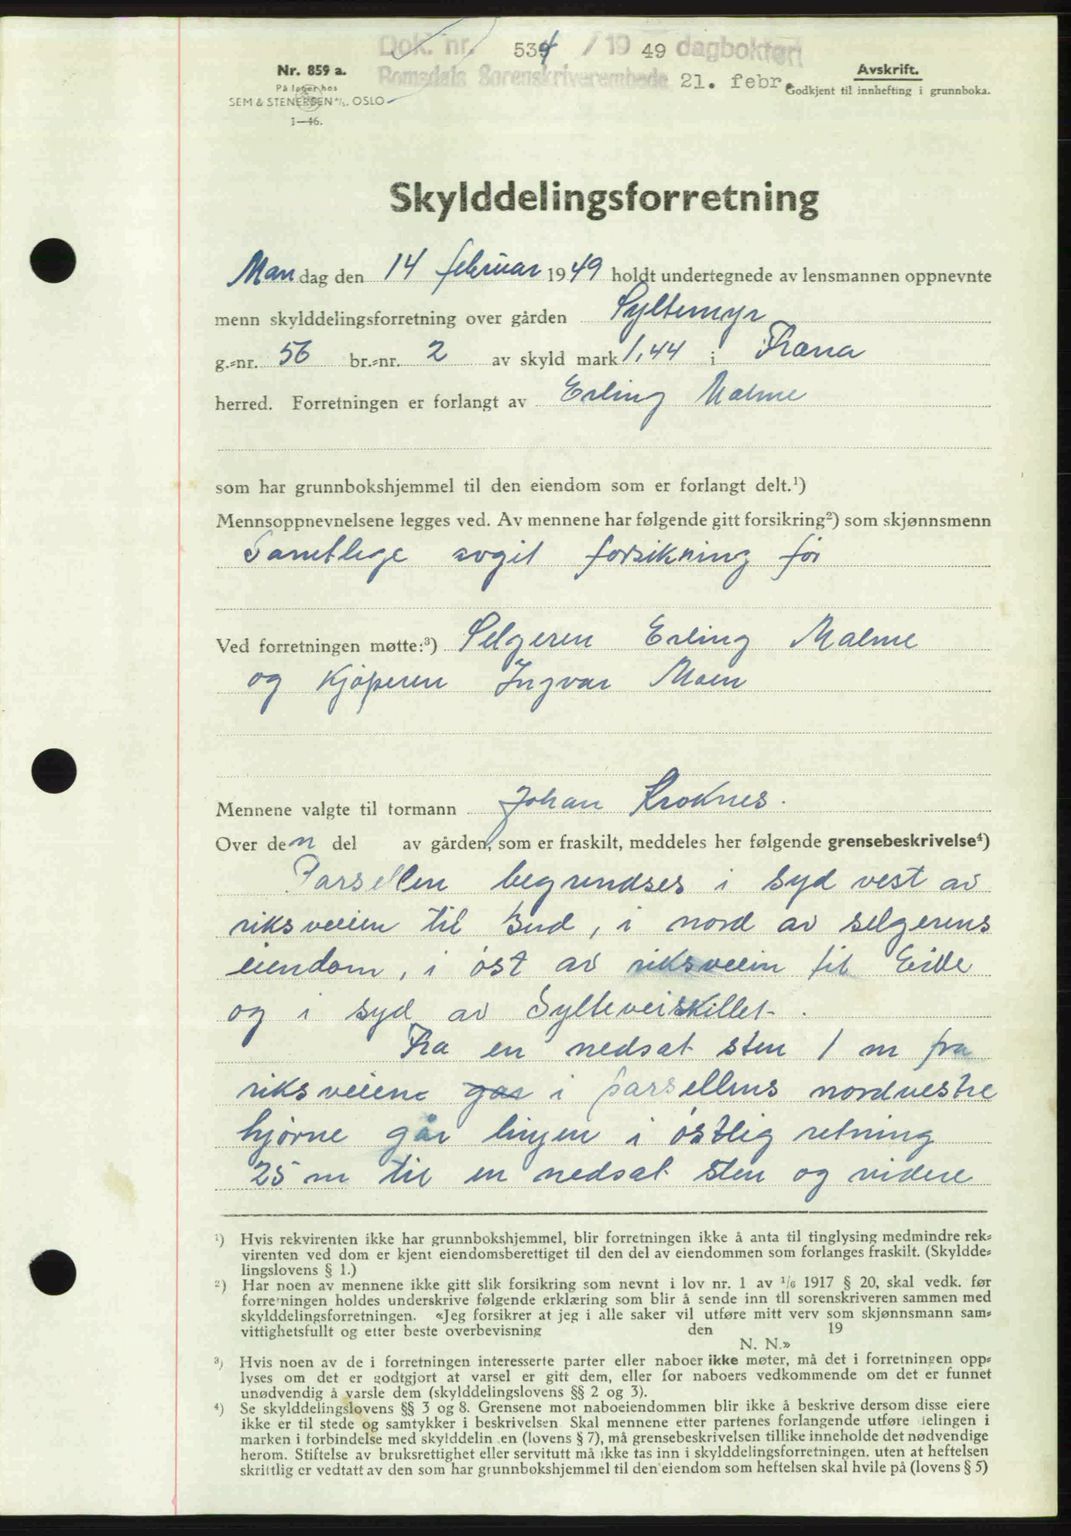 Dok. nr. 534 / 19 49 dagboken
Romsdals Sorenskriverembede 21. febr.
Nr. 859 a.
På lager hos
SEM & STENERSEN A/S, OSLO
I—46.
Avskrift.
Godkjent til innhefting i grunnboka.
Skylddelingsforretning
Mandag den 14 februar 1949 holdt undertegnede av lensmannen oppnevnte
menn skylddelingsforretning over gården Syltemyr
g.-nr. 56 br.-nr. 2 av skyld mark 1,44 i Fræna
herred. Forretningen er forlangt av Erling Malme
som har grunnbokshjemmel til den eiendom som er forlangt delt.¹)
Mennsoppnevnelsene legges ved. Av mennene har følgende gitt forsikring²) som skjønnsmenn
Samtlege avgit forsikning før
Ved forretningen møtte:³) Selgeren Erling Malme
og kjøperen Ingvar Moen
Mennene valgte til formann Johan Kroknes.
Over den del av gården, som er fraskilt, meddeles her følgende grensebeskrivelse⁴)
Parsellen begrendses i syd vest av
riksveien til Bud, i nord av selgerens
eiendom, i øst av riksveien til Eide
og i syd av Sylteveiskillet.
Fra en nedsat sten 1 m fra
riksveiene gas i parsellens nordvestre
hjørne går linjen i østlig retning
25 m til en nedsat sten og videre
¹) Hvis rekvirenten ikke har grunnbokshjemmel, blir forretningen ikke å anta til tinglysing medmindre rek-
virenten ved dom er kjent eiendomsberettiget til den del av eiendommen som forlanges fraskilt. (Skyldde-
lingslovens § 1.)
²) Har noen av mennene ikke gitt slik forsikring som nevnt i lov nr. 1 av 1/6 1917 § 20, skal vedk. før
forretningen holdes underskrive følgende erklæring som blir å sende inn til sorenskriveren sammen med
skylddelingsforretningen. «Jeg forsikrer at jeg i alle saker vil utføre mitt verv som skjønnsmann sam-
vittighetsfullt og etter beste overbevisning den 19
N. N.»
³) Hvis noen av de i forretningen interesserte parter eller naboer ikke møter, må det i forretningen opp-
lyses om det er godtgjort at varsel er gitt dem, eller for naboers vedkommende om det er funnet
unødvendig å varsle dem (skylddelingslovens §§ 2 og 3).
⁴) Se skylddelingslovens §§ 3 og 8. Grensene mot naboeiendommen blir ikke å beskrive dersom disse eiere
ikke er til stede og samtykker i beskrivelsen. Skal mennene etter partenes forlangende utføre delingen i
marken i forbindelse med skylddelin en (lovens § 7), må grensebeskrivelsen tillike inneholde det nødvendige
herom. Stiftelse av bruksrettighet eller servitutt må ikke tas inn i skylddelingsforretningen, uten at heftelsen
skriftlig er vedtatt av den som har grunnbokshjemmel til den eiendom som heftelsen skal hvile på (lovens § 5)